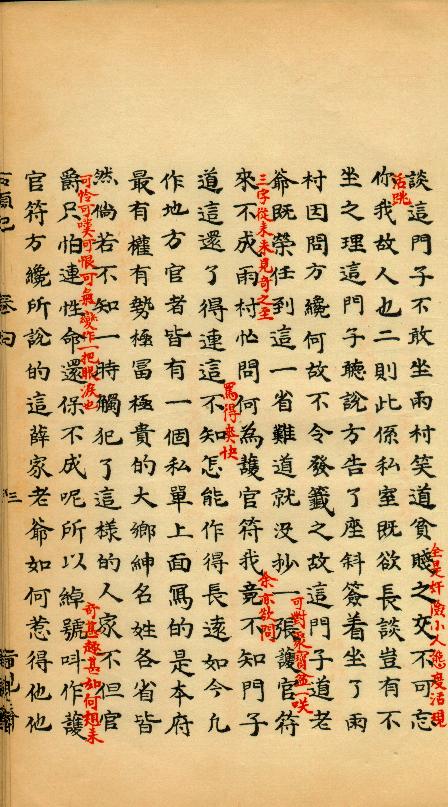 全是奸險小人態度活現
活跳
談這門子不敢坐雨村笑道貧賤之交不可忘
你我故人也二則此係私室既欲長談豈有不
坐之理這門子聽說方告了座斜簽着坐了雨
村因問方纔何故不令發籤之故這門子道老
可對聚寶盆一笑
三字從來未見奇之至
爺既榮任到這一省難道就没抄一張護官符
余亦欲問
來不成雨村忙問何為護官符我竟不知門子
罵得爽快
道這還了得連這不知怎能作得長遠如今凡
作地方官者皆有一個私單上面寫的是本府
最有權有勢極富極貴的大鄉紳名姓各省皆
然倘若不知一時觸犯了這樣的人家不但官
可怜可嘆可恨可氣變作一把眼淚也
奇甚趣甚如何想來
爵只怕連性命還保不成呢所以綽號叫作護
官符方纔所說的這薛家老爺如何惹得他他
石頭記 卷四 三 脂硯齋